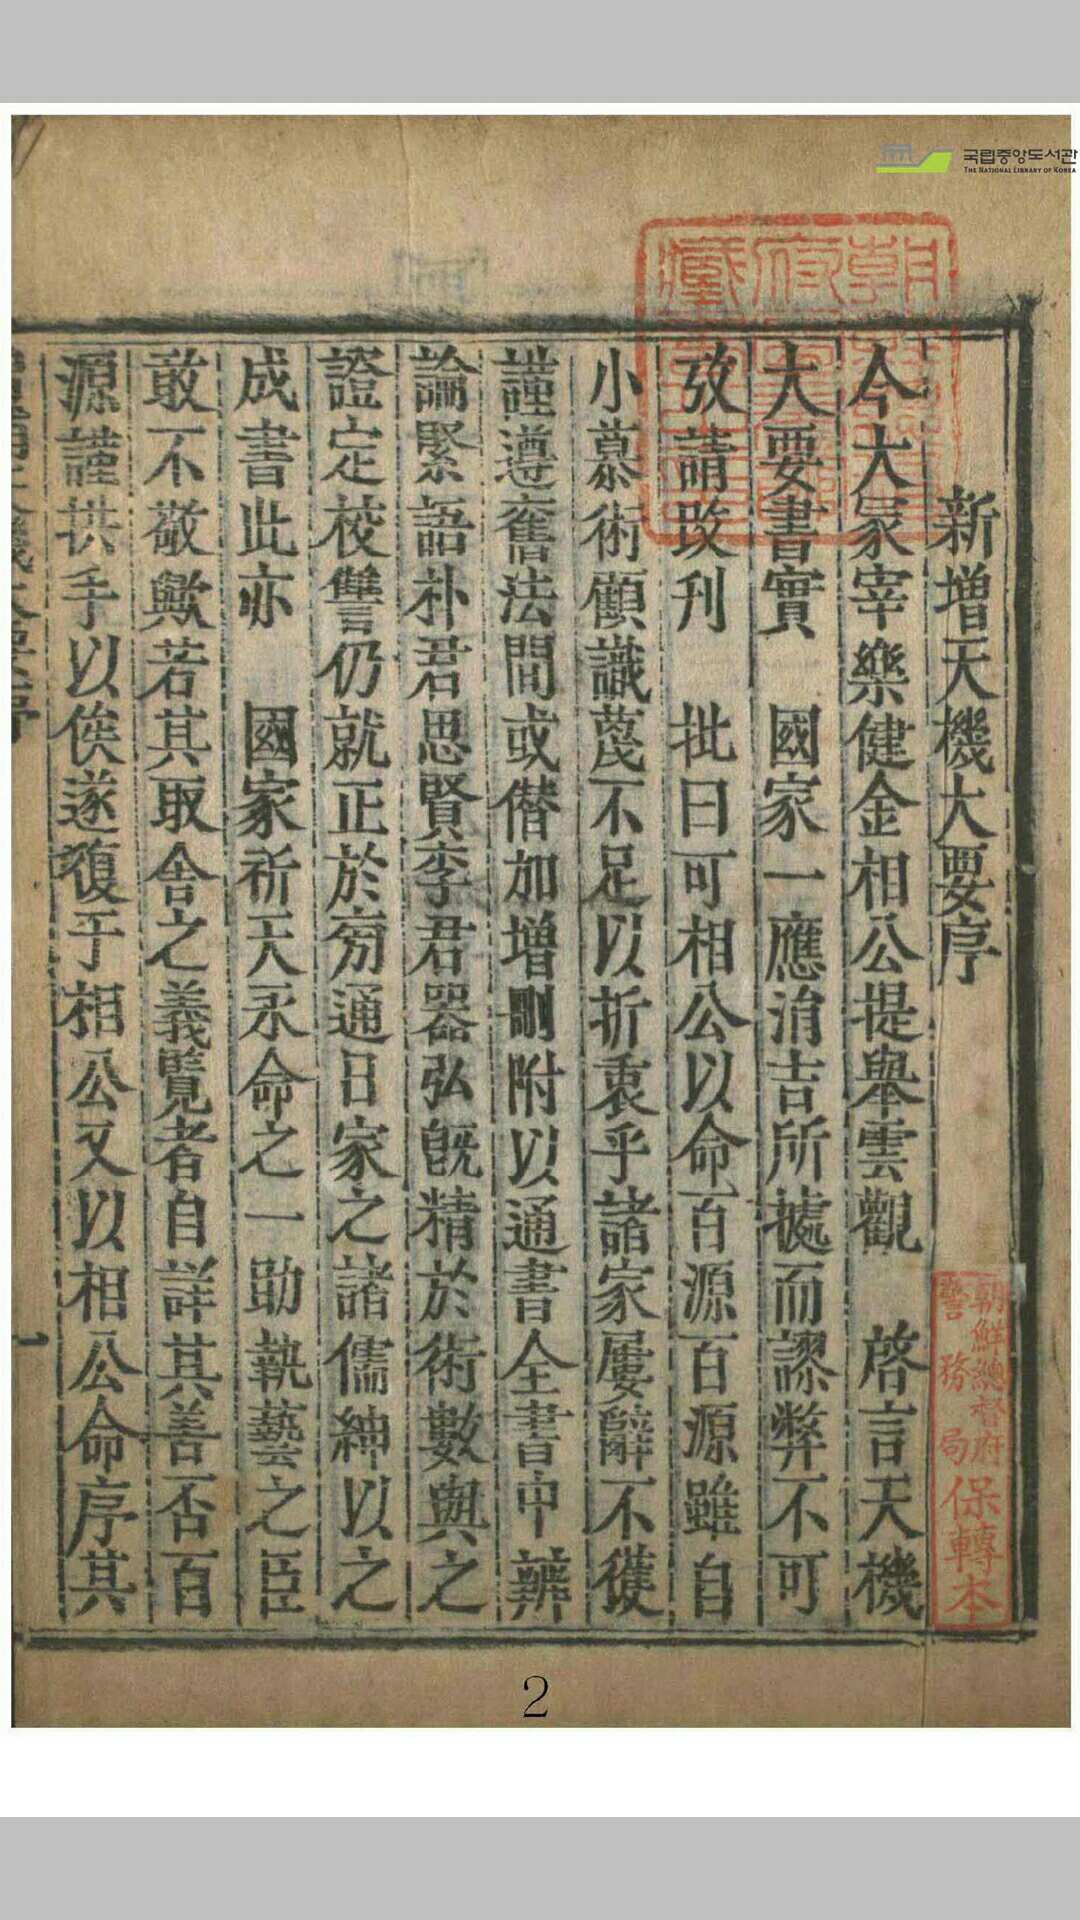 국립중앙도서관
THE NATIONAL LIBRARY OF KOREA
新增天機大要序
今大冡宰樂健金相公提舉雲觀 啓言天機
大要書實 國家一應涓吉所據而謬弊不可
攷請改刊 批曰可相公以命百源百源雖自
小慕術顧識蔑不足以折衷乎諸家屢辭不獲
謹遵舊法間或僣加增刪附以通書全書中辨
論緊語朴君思賢李君器弘旣精於術數與之
證定校讐仍就正於旁通日家之諸儒紳以之
成書此亦 國家祈天永命之一助執藝之臣
敢不敬歟若其取舍之義覽者自詳其善否百
源謹拱手以俟遂復于相公又以相公命序其
朝鮮總督府
警務局
保轉本
2